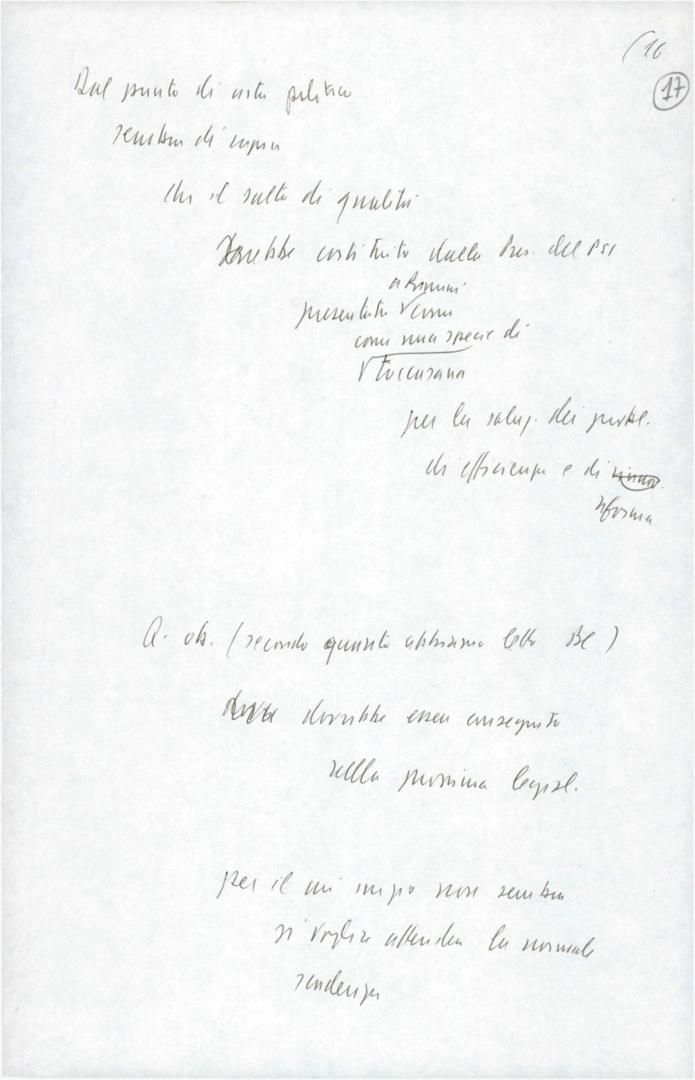 (16
17
Dal punto di vista politico
sembra di capire
che il salto di qualità
sarebbe costituito dalla Pres. del PSI
a Rimini
presentata come
come una specie di
toccasana
per la soluz. dei probl.
di efficienza e di
riforma
Q. ob. (secondo quanto abbiamo letto
dovrebbe essere conseguito
nella prossima legisl.
per il cui inizio non sembra
si voglia attendere la normale
scadenza